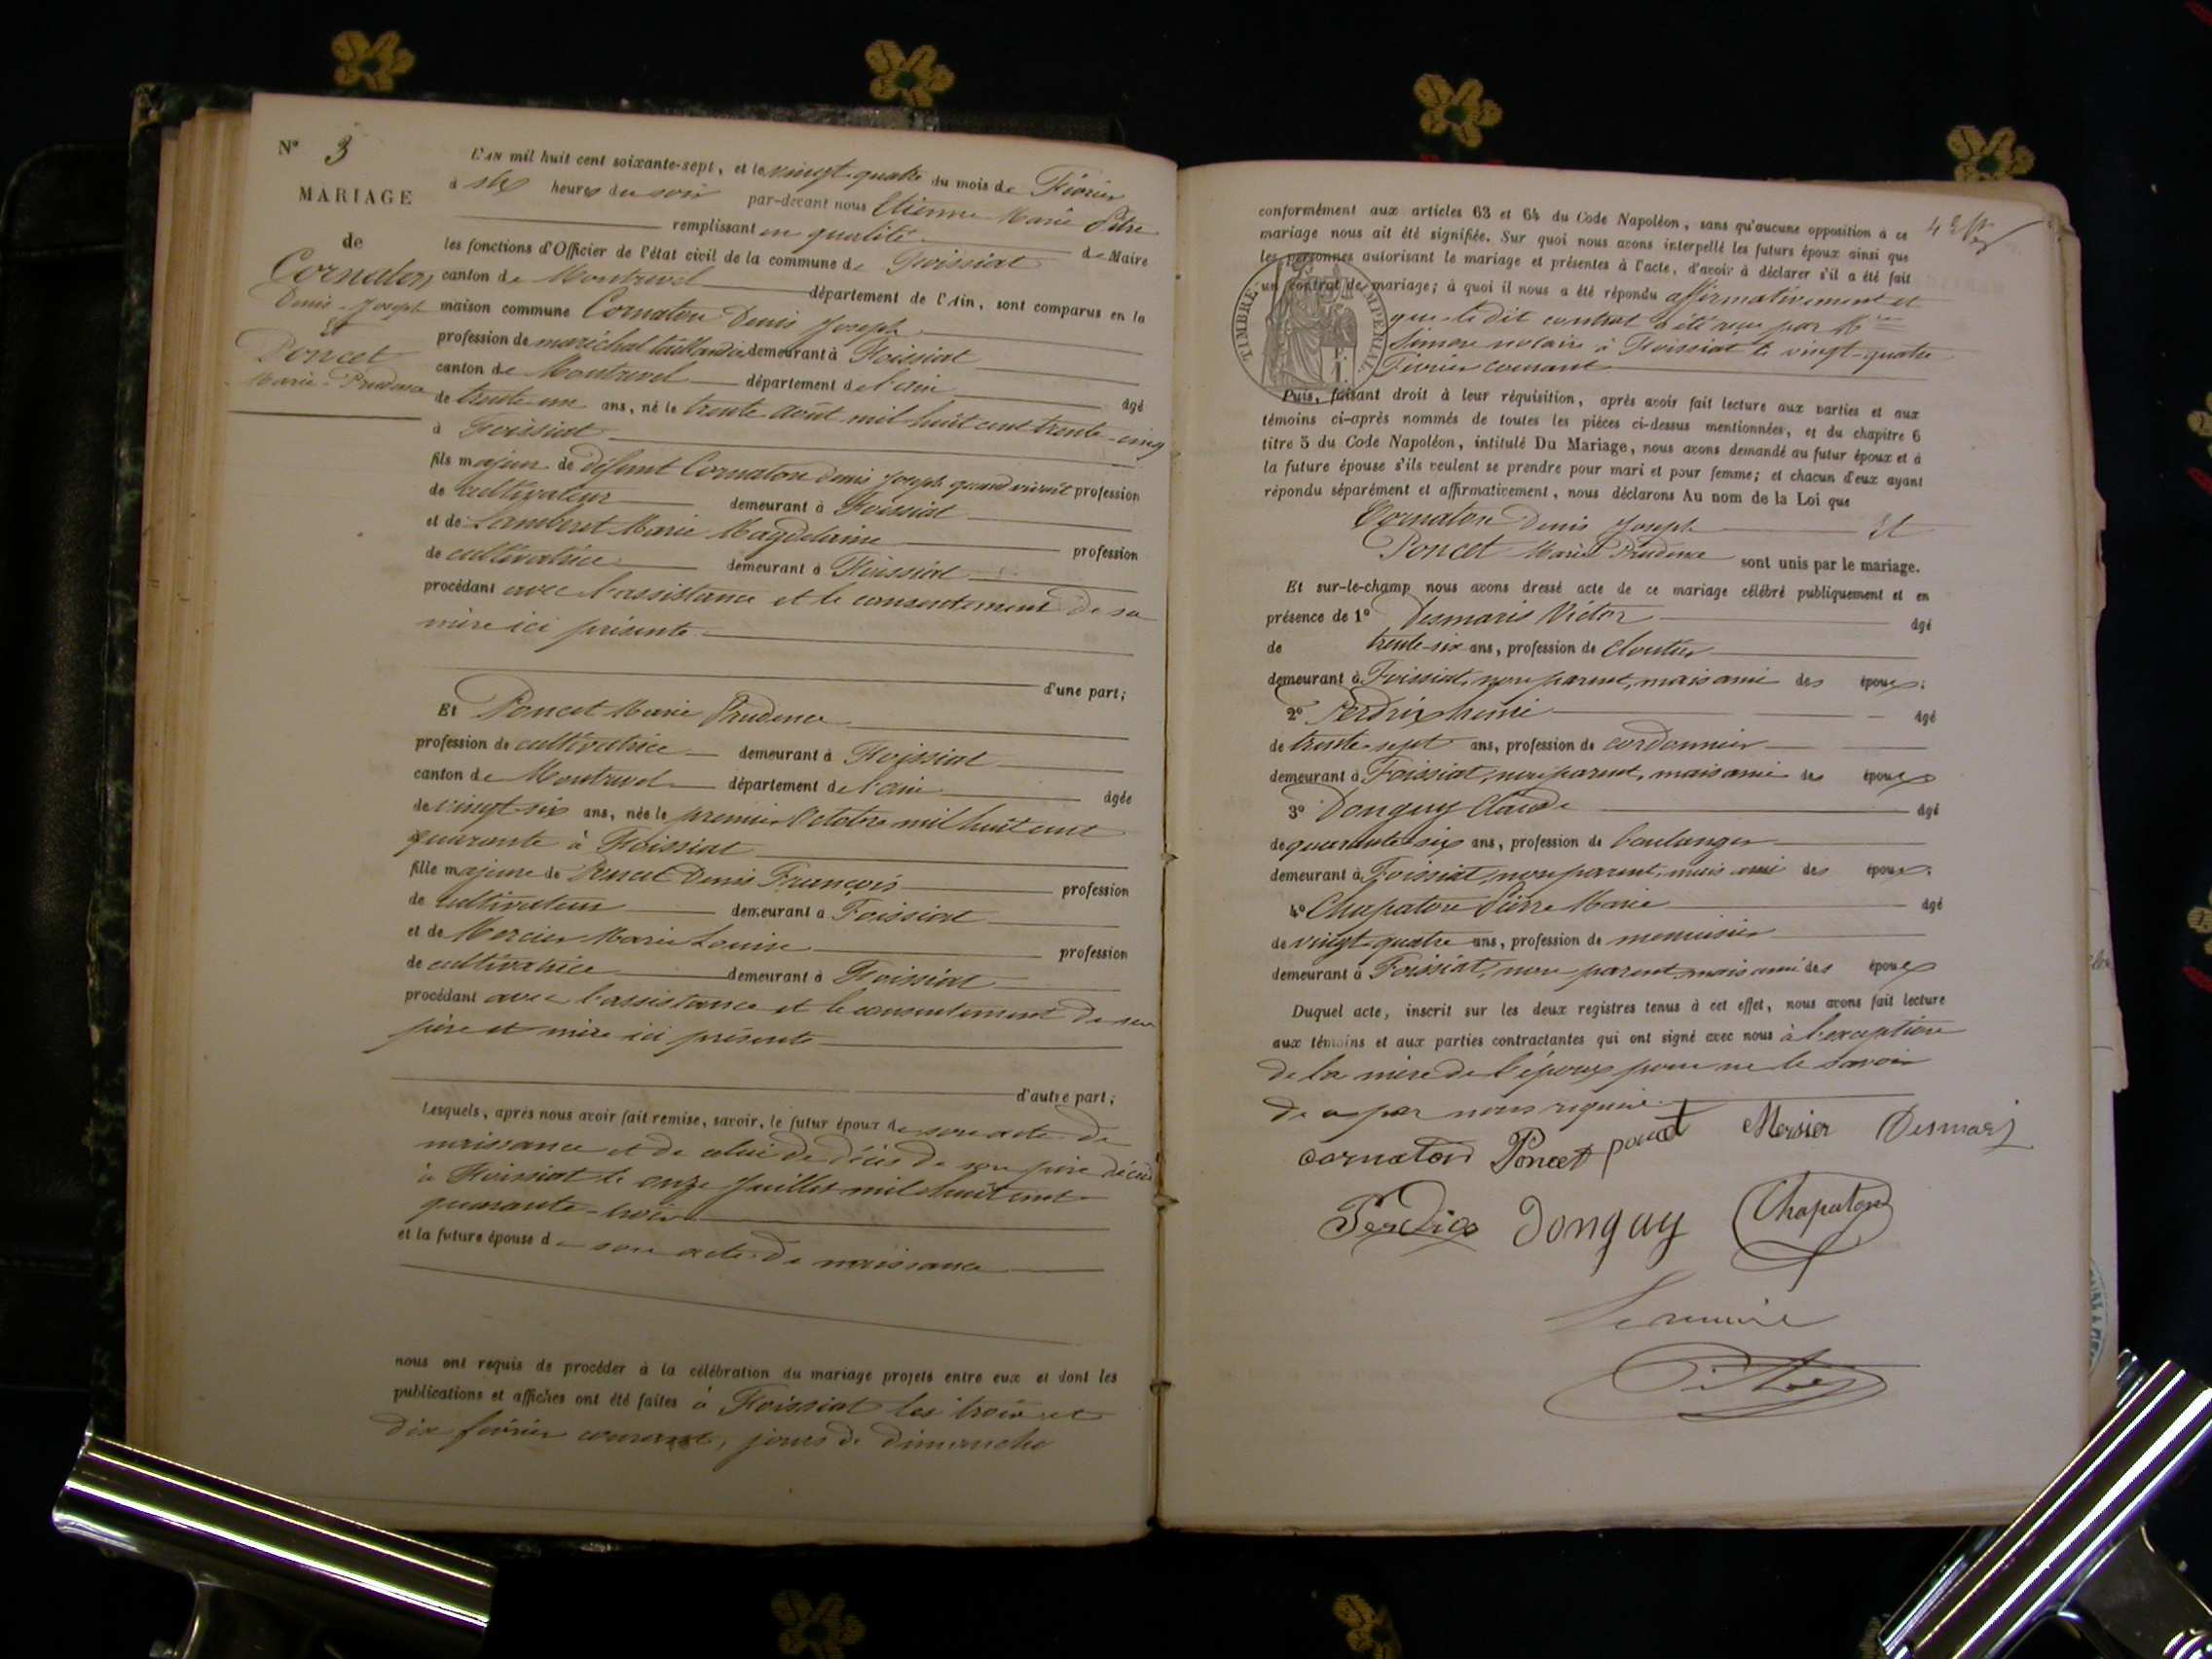 N° 3
MARIAGE
de
Cornaton
Denis-Joseph
et
Poncet
Marie-Prudence
L'AN mil huit cent soixante-sept, et le vingt-quatre du mois de Février
à six heures du soir par-devant nous Etienne Marie Pitre
remplissant en qualité de Maire
les fonctions d'Officier de l'état civil de la commune de Foissiat
canton de Montrevel département de l'Ain, sont comparus en la
maison commune Cornaton Denis Joseph
profession de maréchal taillandier demeurant à Foissiat
canton de Montrevel département de l'ain
de trente un ans, né le trente août mil huit cent trente-cinq âgé
à Foissiat
fils majeur de défunt Cornaton Denis Joseph quand vivait profession
de cultivateur demeurant à Foissiat
et de Lamberet Marie Magdelaine profession
de cultivatrice demeurant à Foissiat
procédant avec l'assistance et le consentement de sa
mère ici présente
d'une part;
Et Poncet Marie Prudence
profession de cultivatrice demeurant à Foissiat
canton de Montrevel département de l'ain âgée
de vingt-six ans, née le premier Octobre mil huit cent
quarante à Foissiat
fille majeure de Poncet Denis François profession
de cultivateur demeurant à Foissiat
et de Mercier Marie Louise profession
de cultivatrice demeurant à Foissiat
procédant avec l'assistance et le consentement de ses
père et mère ici présents
d'autre part;
Lesquels, après nous avoir fait remise, savoir, le futur époux de son acte de
naissance et de celui de décès de son père décédé
à Foissiat le onze Juillet mil huit cent
quarante-trois
et la future épouse de son acte de naissance
nous ont requis de procéder à la célébration du mariage projeté entre eux et dont les
publications et affiches ont été faites à Foissiat les trois et
dix février courant, jours de dimanche
conformément aux articles 63 et 64 du Code Napoléon, sans qu'aucune opposition à ce
mariage nous ait été signifiée. Sur quoi nous avons interpellé les futurs époux ainsi que
les personnes autorisant le mariage et présentes à l'acte, d'avoir à déclarer s'il a été fait
un contrat de mariage; à quoi il nous a été répondu affirmativement et
que le dit contrat a été reçu par Me
notaire à Foissiat le vingt-quatre
Février courant
TIMBRE IMPERIAL
Puis, faisant droit à leur réquisition, après avoir fait lecture aux parties et aux
témoins ci-après nommés de toutes les pièces ci-dessus mentionnées, et du chapitre 6
titre 5 du Code Napoléon, intitulé Du Mariage, nous avons demandé au futur époux et à
la future épouse s'ils veulent se prendre pour mari et pour femme; et chacun d'eux ayant
répondu séparément et affirmativement, nous déclarons Au nom de la Loi que
Cornaton Denis Joseph Et
Poncet Marie Prudence sont unis par le mariage.
Et sur-le-champ nous avons dressé acte de ce mariage célébré publiquement et en
présence de 1° Desmaris Victor âgé
de trente-six ans, profession de cloutier
demeurant à Foissiat, non parent, mais ami des époux;
2° Perdrix âgé
de trente-sept ans, profession de cordonnier
demeurant à Foissiat, non parent, mais ami des époux
3° Donguy Claude âgé
de quarante six ans, profession de boulanger
demeurant à Foissiat, non parent, mais ami des époux;
4° Chapaton Pierre Marie âgé
de vingt-quatre ans, profession de menuisier
demeurant à Foissiat, non parent, mais ami des époux
Duquel acte, inscrit sur les deux registres tenus à cet effet, nous avons fait lecture
aux témoins et aux parties contractantes qui ont signé avec nous à l'exception
de la mère de l'époux pour ne le savoir
de ce par nous requise
cornaton Poncet poncet Mersier Desmaris
Perdrix Donguy Chapaton
Le maire
Pitre